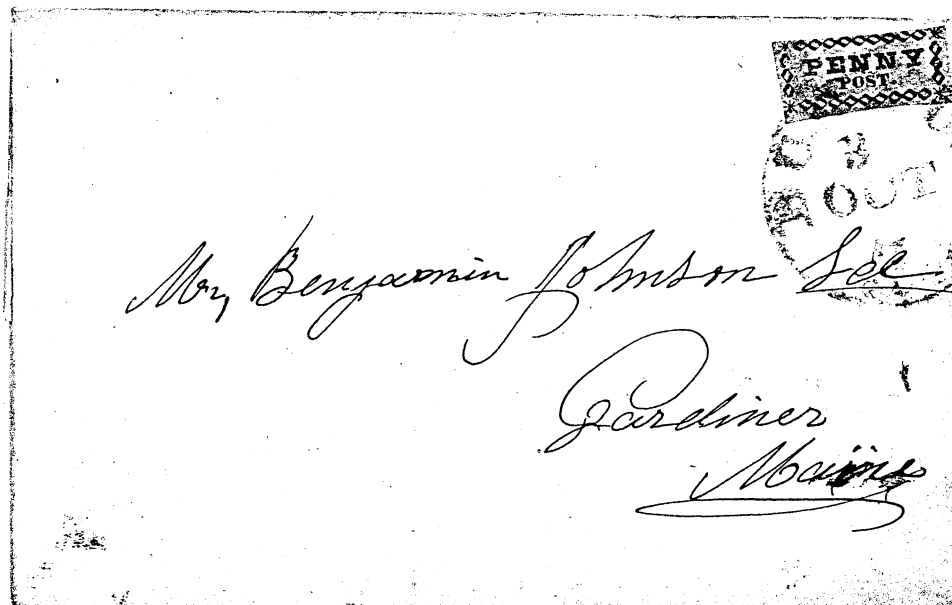 PENNY
POST.
3
OCT
Mr, Benjamin Johnson See
Gardiner
Maine